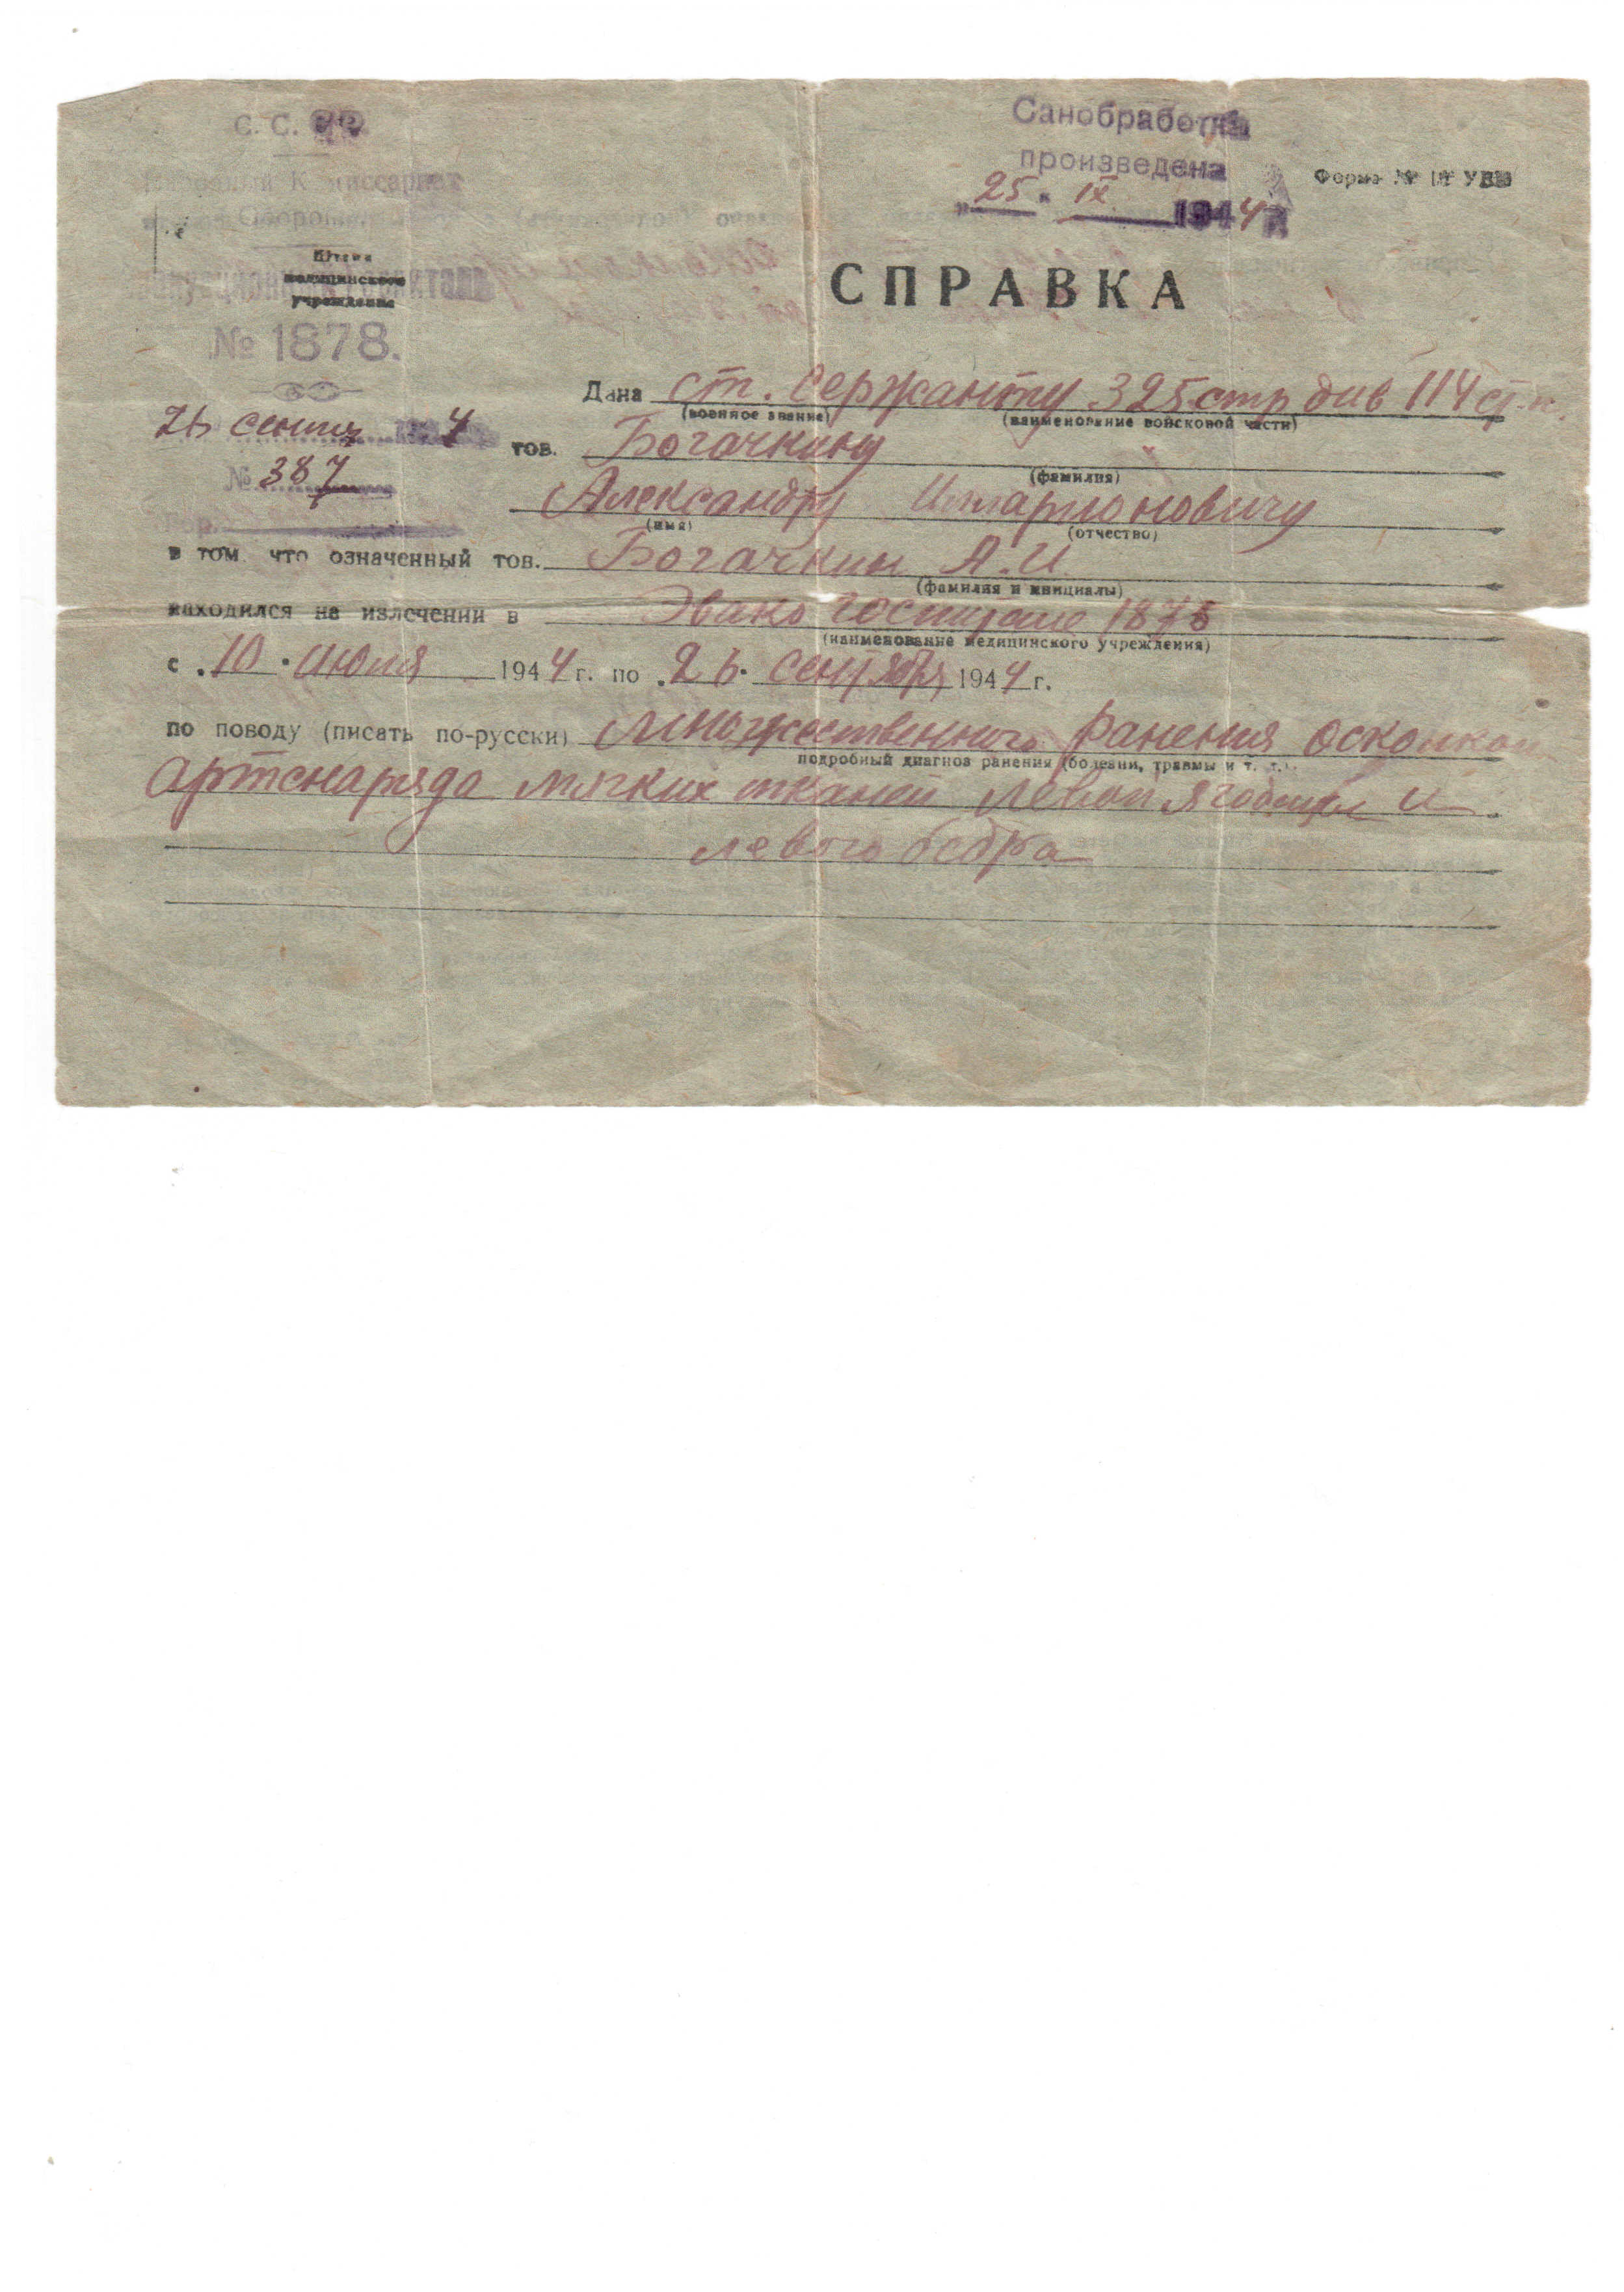 С. С. С Р
Народный Комиссариат
Обороны
Санобработка
произведена
"25" IX 1944 г.
Форма №
Штамп
медицинского
учреждения
№ 1878.
СПРАВКА
26 сентяб 1944
№ 387
Дана ст. сержанту 325 стр див 114 ст.п.
(военное звание) (наименование войсковой части)
тов. Богачкину
(фамилия)
Александру Илларионовичу
(имя) (отчество)
в том что означенный тов. Богачкин А. И.
(фамилия и инициалы)
находился на излечении в Эвако госпитале 1878
(наименование медицинского учреждения)
с "10" июля 1944 г. по "26" сентября 1944 г.
по поводу (писать по-русски) множественного ранения осколком
подробный диагноз ранения (болезни, травмы и т. д.)
артснаряда мягких тканей левой ягодицы и
левого бедра